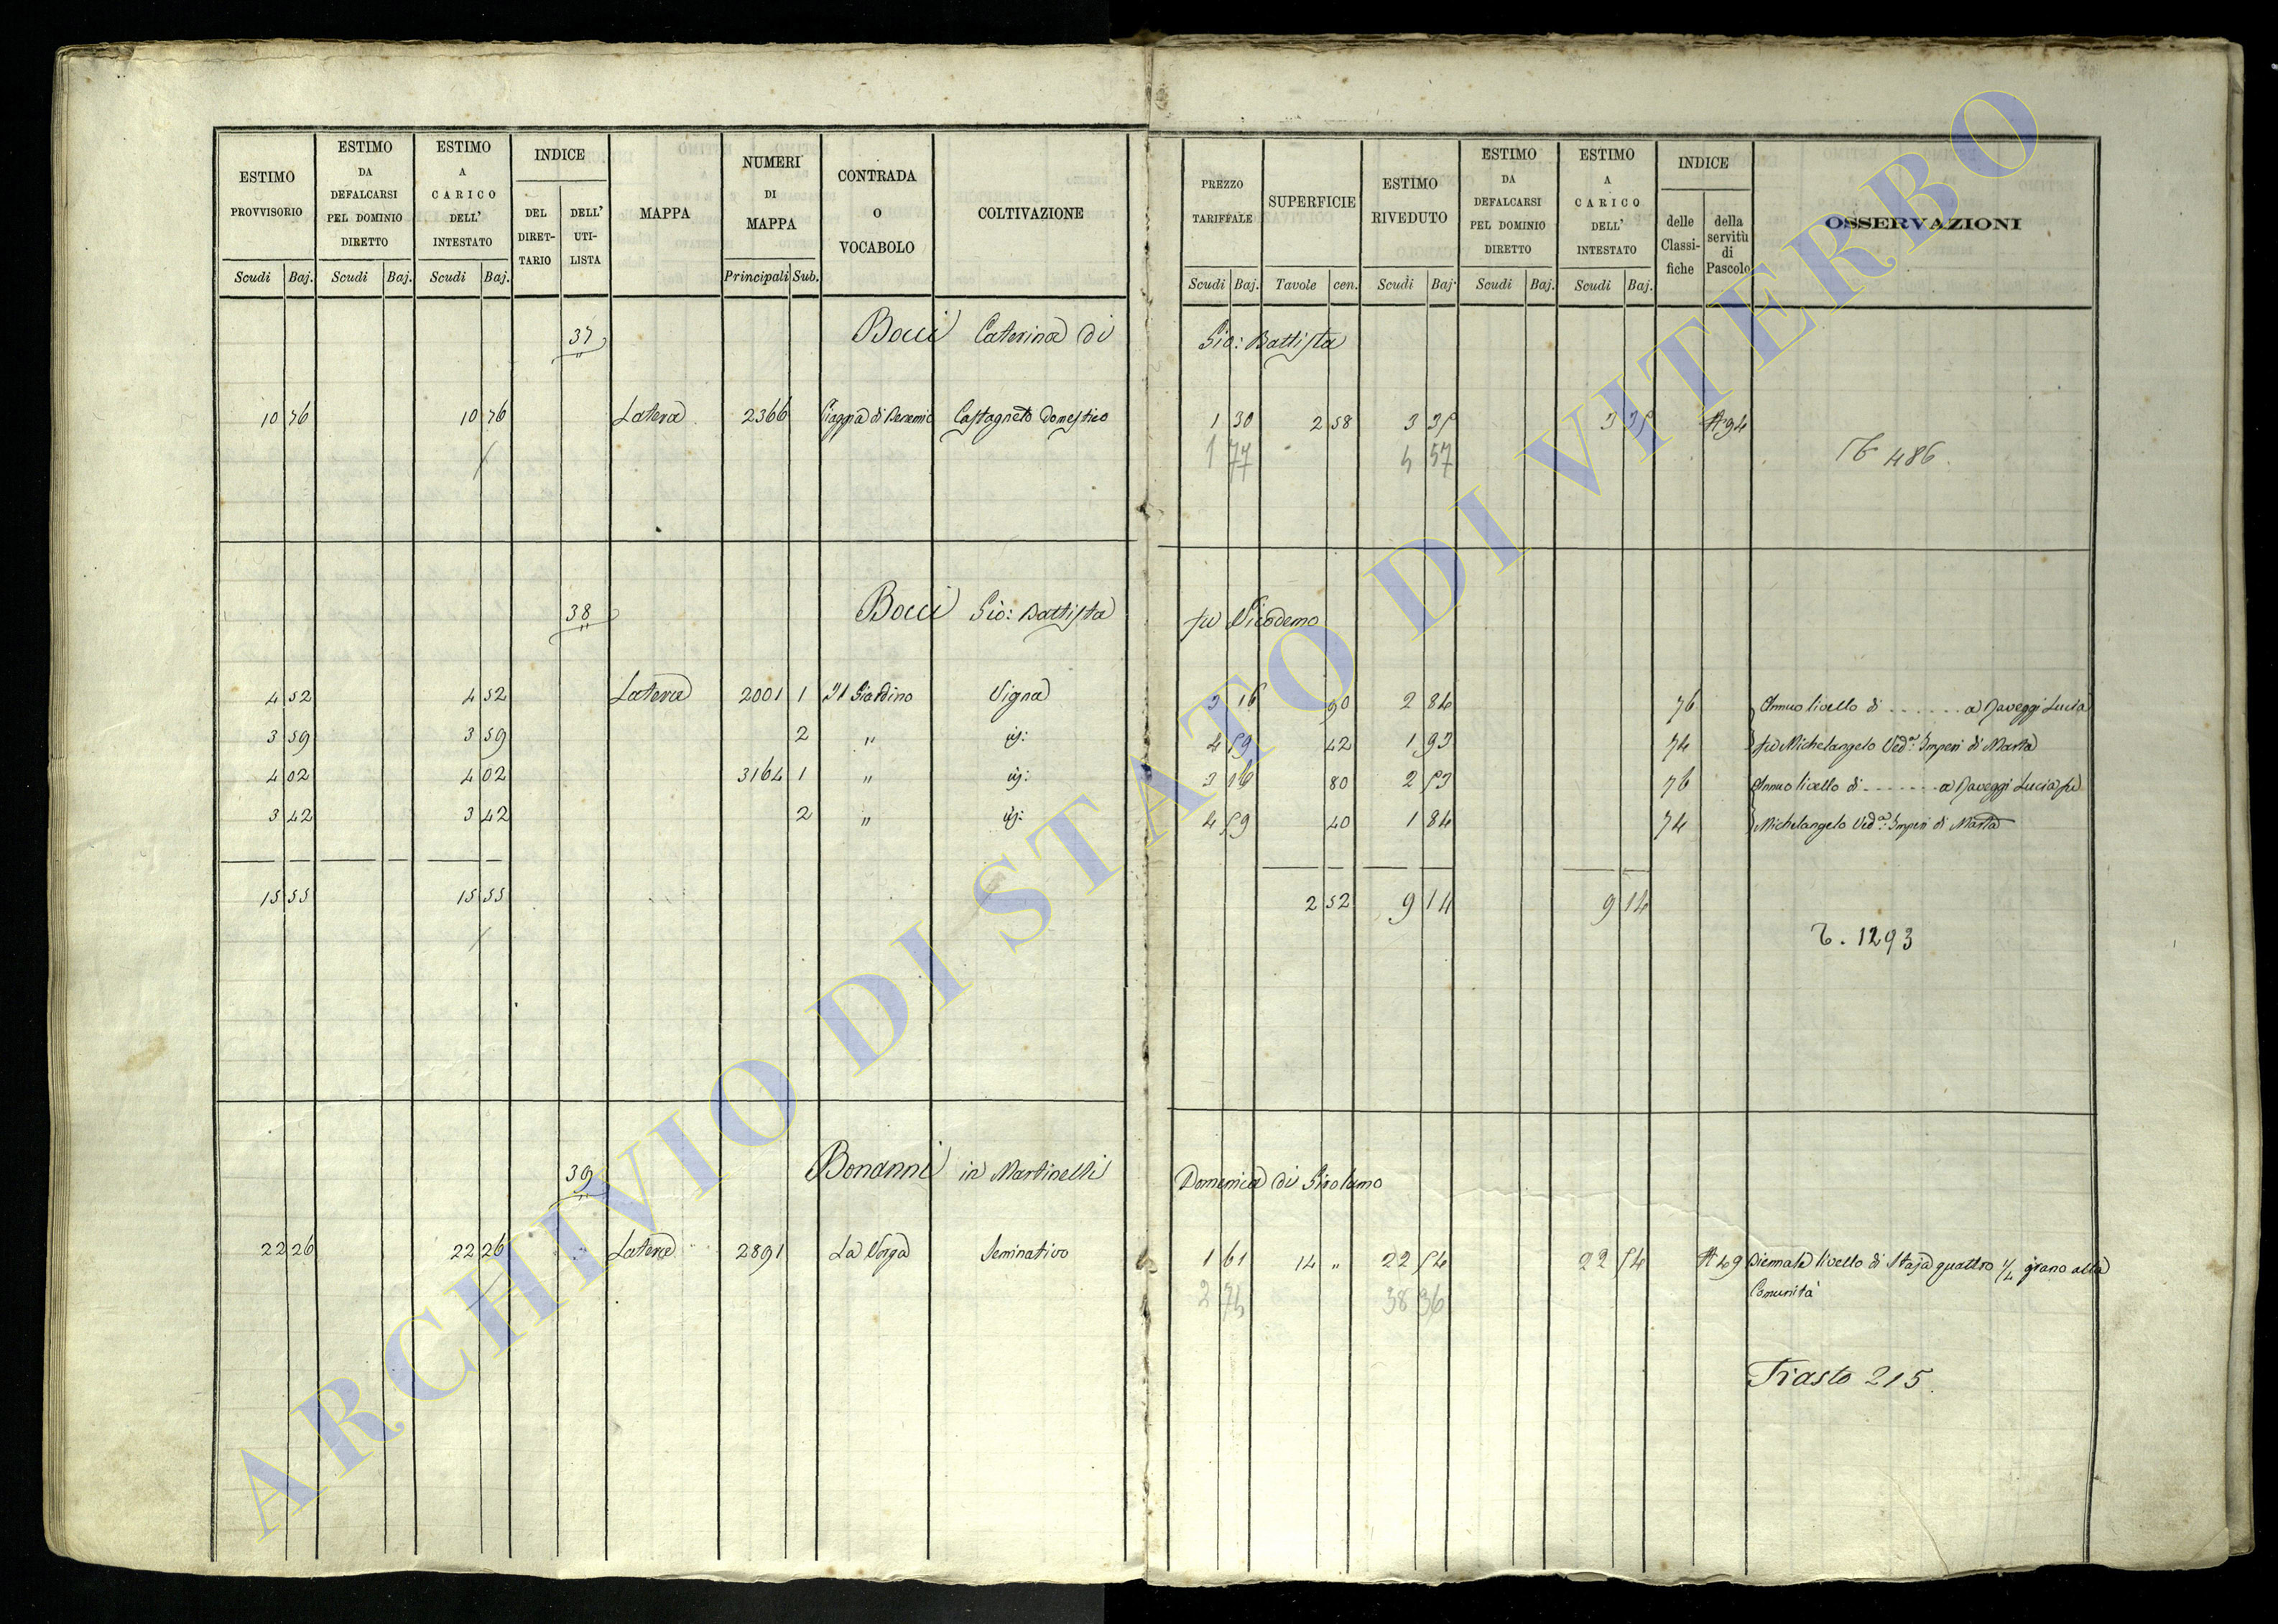 ESTIMO PROVVISORIO Scudi Baj.
ESTIMO DA DEFALCARSI PEL DOMINIO DIRETTO Scudi Baj.
ESTIMO A CARICO DELL' INTESTATO Scudi Baj.
INDICE DEL DIRET-TARIO DELL' UTI-LISTA
MAPPA
NUMERI DI MAPPA Principali Sub.
CONTRADA O VOCABOLO
COLTIVAZIONE
PREZZO TARIFFALE Scudi Baj.
SUPERFICIE Tavole cen.
ESTIMO RIVEDUTO Scudi Baj.
ESTIMO DA DEFALCARSI PEL DOMINIO DIRETTO Scudi Baj.
ESTIMO A CARICO DELL' INTESTATO Scudi Baj.
INDICE delle Classi-fiche della servitù di Pascolo
OSSERVAZIONI
37 Bocci Caterina di Gio: Battista
10 76 10 76 Latera 2366 Castagneto Domestico 1 30 2 58 3 35 3 35 A 94
1 77 4 57
486
38 Bocci Gio: Battista fu Nicodemo
4 52 4 52 Latera 2001 1 Il Giardino Vigna 3 16 90 2 84 76 Annuo livello di . . . . . . a Daveggi Lucia
3 59 3 59 2 " id: 4 59 42 1 93 74 fu Michelangelo Ved.a Imperi di Marta
4 02 4 02 3164 1 " id: 3 16 80 2 53 76 Annuo livello di . . . . . . . a Daveggi Lucia fu
3 42 3 42 2 " id: 4 59 40 1 84 74 Michelangelo Ved.a Imperi di Marta
15 55 15 55 2 52 9 14 9 14
T. 1293
39 Bonanni in Martinelli Domenica di Girolamo
22 26 22 26 Latera 2891 La Verga Seminativo 1 61 14 " 22 54 22 54 A 49 Biennale livello di Staja quattro 1/4 grano alla
Comunità
2 74 38 36
Trasto 215.
ARCHIVIO DI STATO DI VITERBO